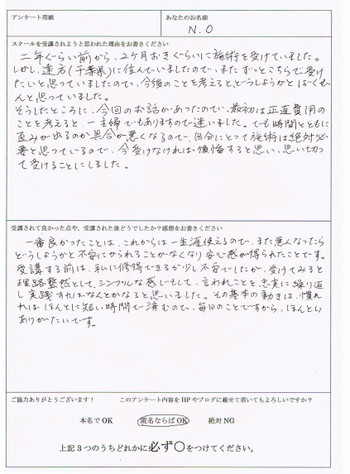 アンケート用紙
あなたのお名前
N.O
スクールを受講されようと思われた理由をお書きください
二年ぐらい前から、2ヶ月おきぐらいに施術を受けていました。
しかし、遠方(千葉県)に住んでいましたので、またずっとこちらで受け
たいと思っていましたので、今後のことを考えると、どうしようかとばくぜ
んと思っていました。
そうしたところに、今回のお話があったので、最初は正直費用の
ことを考えると、一主婦でもありますので迷いました。でも時間とともに
歪みが出るのか具合が悪くなるので、自分にとって施術は絶対必
要と思っているので、今受けなければ後悔すると思い、思い切っ
て受けることにしました。
受講されて良かった点や、受講された後どうでしたか？感想をお書きください
一番良かったことは、これからは一生涯使えるので、また悪くなったら
どうしようかと不安にかられることがなくなり安心感が得られたことです。
受講する前は、私に修得できるか少し不安でしたが、受けてみると
理路整然として、シンプルな感じもして、言われたことを忠実に繰り返
し実践すればなんとかなると思いました。その基本の動きは、慣れ
れば、ほんとに短い時間で済むので、毎日のことですから、ほんとに
ありがたいです。
ご協力ありがとうございます！
このアンケート内容をHPやブログに載せて頂いてもよろしいですか？
本名でOK
匿名ならばOK
絶対NG
上記3つのうちどれかに必ず〇をつけてください。